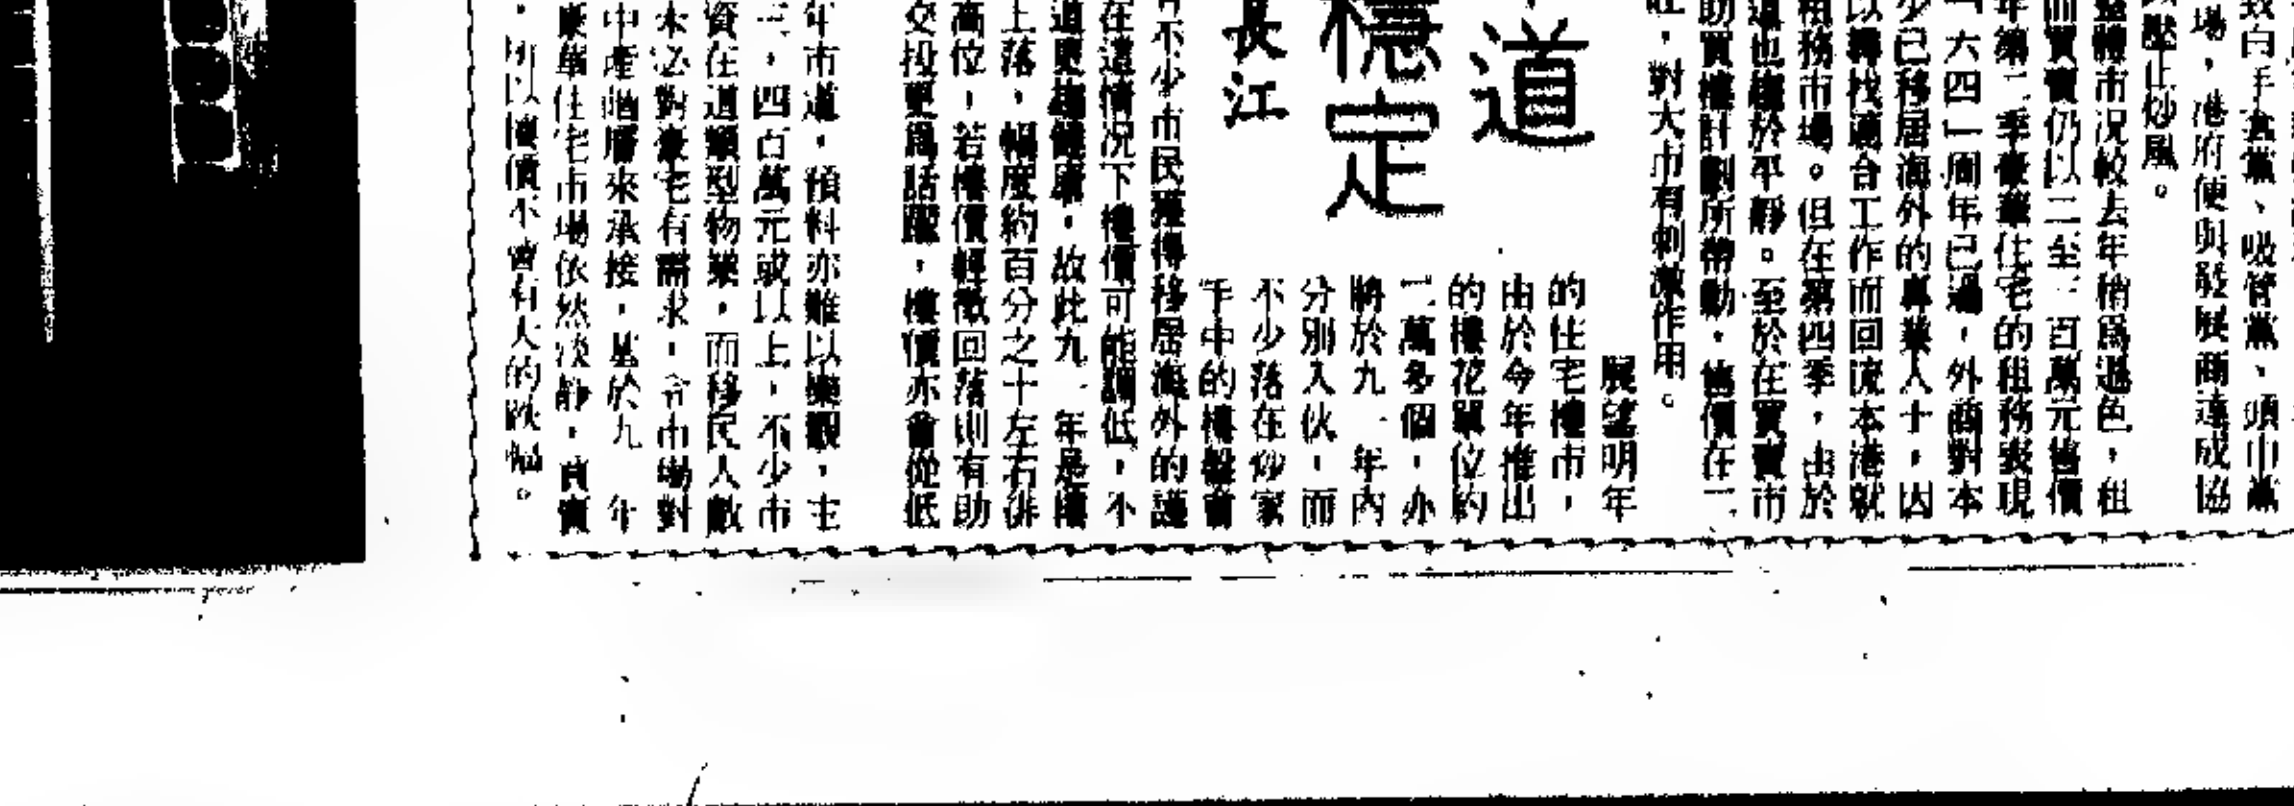 致白手套黨、吸管黨、頭巾黨
場,港府便與發展商達成協
壓止炒風。
整體市況較去年稍爲遜色,租
而買賣仍以二至三百萬元售價
年第二季豪華住宅的租務表現
「六四」周年已過,外商對本
少已移居海外的專業人士,因
以尋找適合工作而回流本港就
租務市場。但在第四季,由於
道也趨於平靜。至於在買賣市
助買樓計劃所帶動,售價在二
,對大市有刺激作用。
展望明年
的住宅樓市,
由於今年推出
的樓花單位約
二萬多個,亦
將於九一年內
分別入伙,而
不少落在炒家
手中的樓盤會
道
穩定
長江
有不少市民獲得移居海外的護
在這情況下樓價可能調低,不
道更趨健康,故此九一年是樓
上落,幅度約百分之十左右徘
高位,若樓價輕微回落則有助
交投更爲活躍,樓價亦會從低
年市道,預料亦難以樂觀,主
三,四百萬元或以上,不少市
資在這類型物業,而移民人數
未必對豪宅有需求,令市場對
中產階層來承接,基於九一年
豪華住宅市場依然淡靜,買賣
,所以樓價不會有大的跌幅。